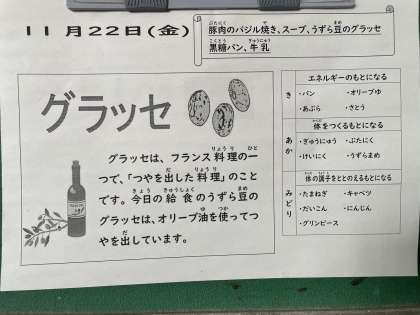 11月22日(金)
豚肉のバジル焼き、スープ、うずら豆のグラッセ
黒糖パン、牛乳
グラッセ
グラッセは、フランス料理の一
つで、「つやを出した料理」のこと
です。今日の給食のうずら豆の
グラッセは、オリーブ油を使ってつ
やを出しています。
き
エネルギーのもとになる
・パン ・オリーブゆ
・あぶら ・さとう
あか
体をつくるもとになる
・ぎゅうにゅう ・ぶたにく
・けいにく ・うずらまめ
みどり
体の調子をととのえるもとになる
・たまねぎ ・キャベツ
・だいこん ・にんじん
・グリンピース